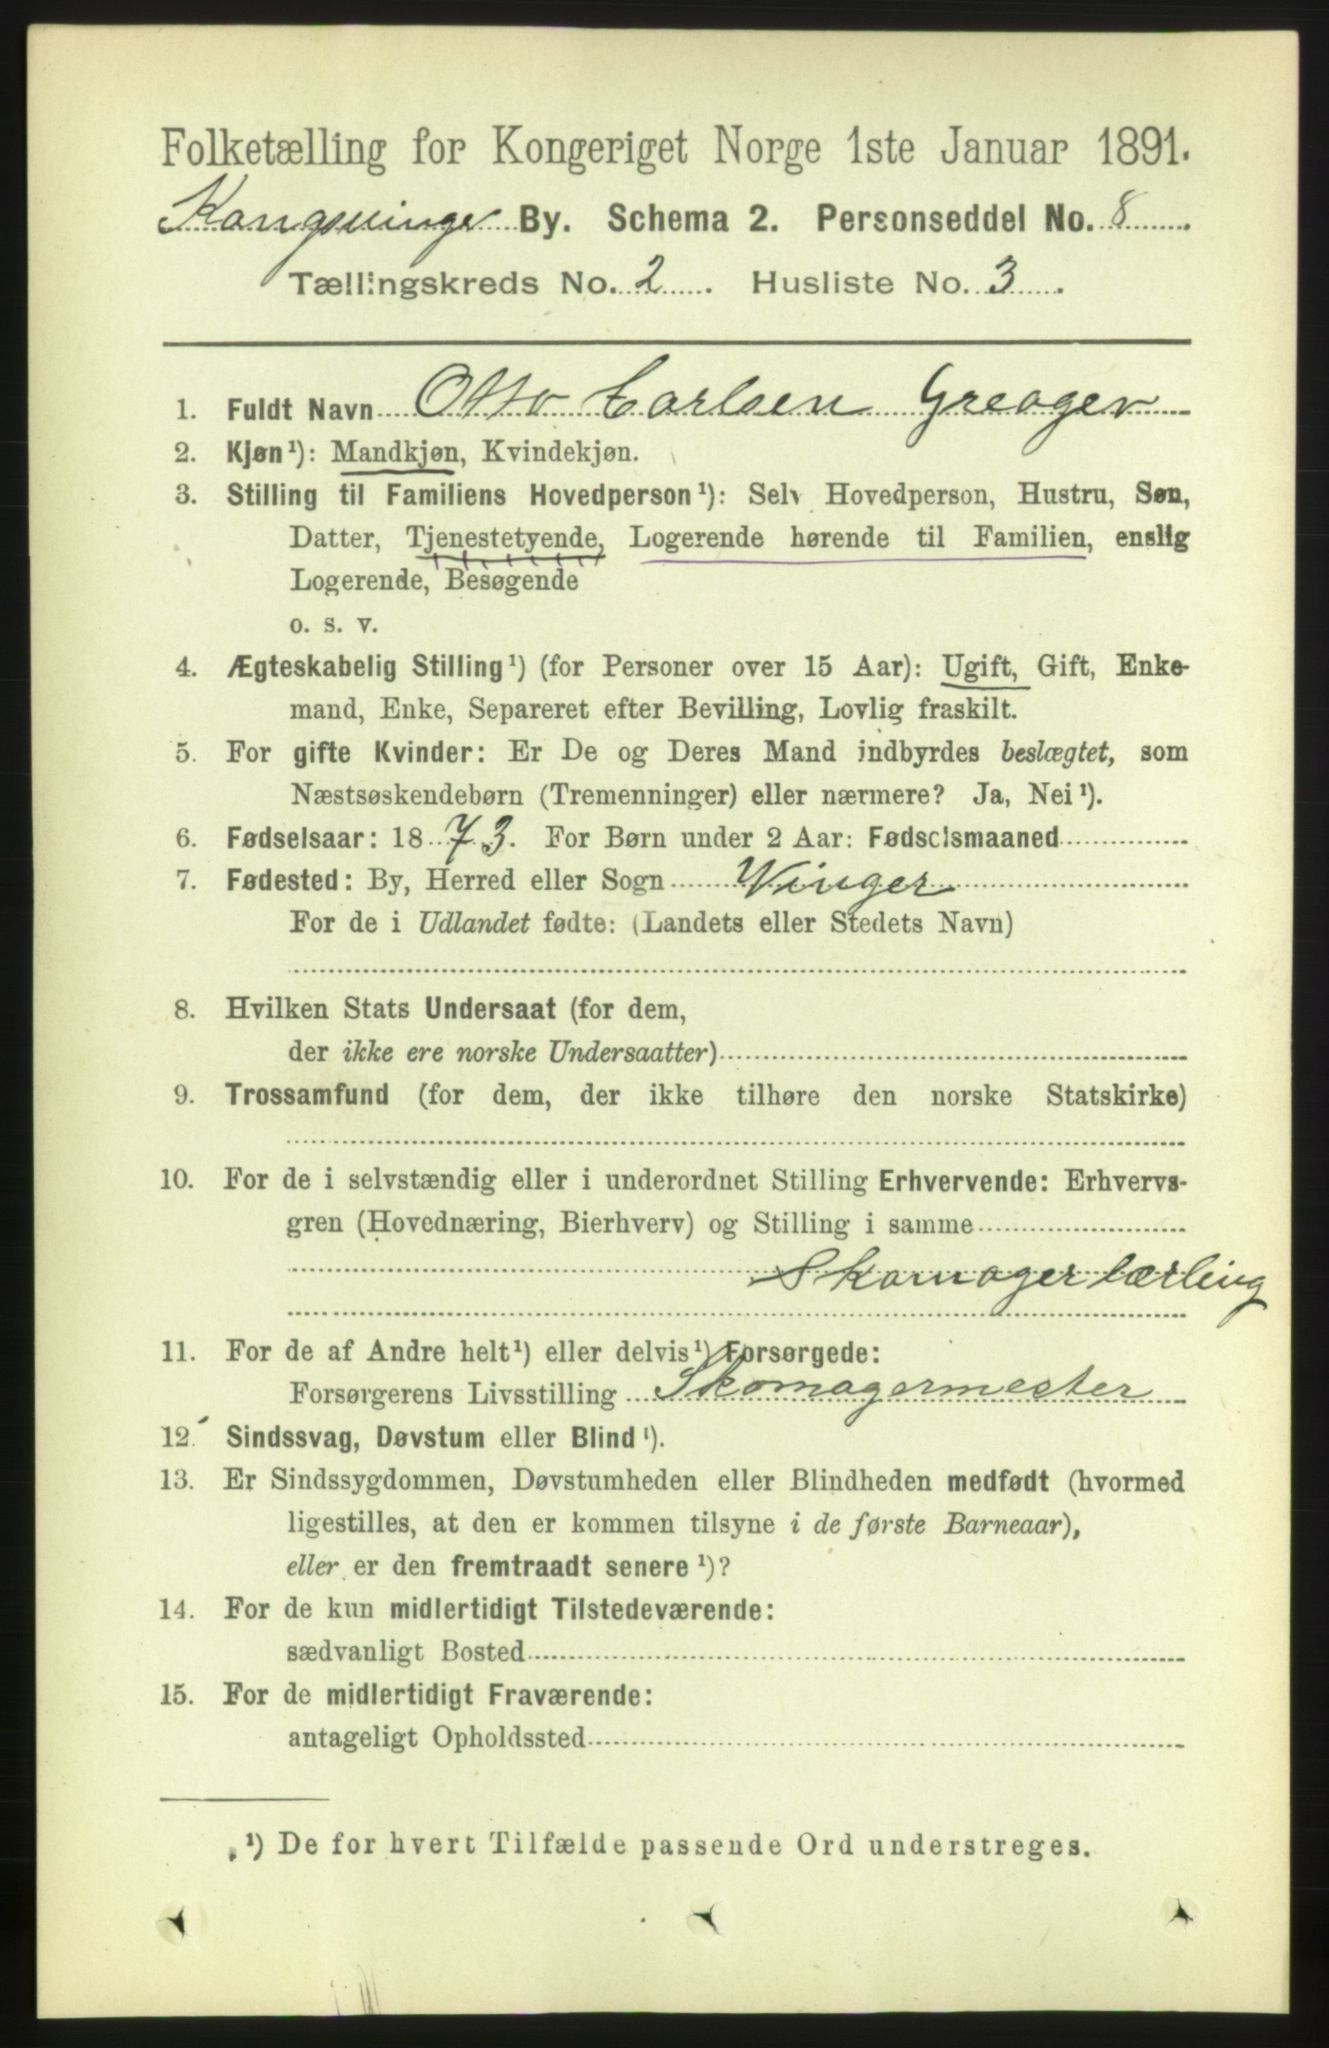 Folketælling for Kongeriget Norge 1ste Januar 1891.
Kongsvinger By. Schema 2. Personseddel No. 8
Tællingskreds No. 2. Husliste No. 3.
1. Fuldt Navn Otto Carlsen Greager
2. Kjøn¹): Mandkjøn, Kvindekjøn.
3. Stilling til Familiens Hovedperson¹): Selv Hovedperson, Hustru, Søn,
Datter, Tjenestetyende, Logerende hørende til Familien, enslig
Logerende, Besøgende
o. s. v.
4. Ægteskabelig Stilling¹) (for Personer over 15 Aar): Ugift, Gift, Enke-
mand, Enke, Separeret efter Bevilling, Lovlig fraskilt.
5. For gifte Kvinder: Er De og Deres Mand indbyrdes beslægtet, som
Næstsøskendebørn (Tremenninger) eller nærmere? Ja, Nei¹).
6. Fødselsaar: 1873. For Børn under 2 Aar: Fødselsmaaned
7. Fødested: By, Herred eller Sogn Vinger
For de i Udlandet fødte: (Landets eller Stedets Navn)
8. Hvilken Stats Undersaat (for dem,
der ikke ere norske Undersaatter)
9. Trossamfund (for dem, der ikke tilhøre den norske Statskirke)
10. For de i selvstændig eller i underordnet Stilling Erhvervende: Erhvervs-
gren (Hovednæring, Bierhverv) og Stilling i samme
Skomagerlærling
11. For de af Andre helt¹) eller delvis¹) Forsørgede:
Forsørgerens Livsstilling Skomagermester
12. Sindssvag, Døvstum eller Blind¹).
13. Er Sindssygdommen, Døvstumheden eller Blindheden medfødt (hvormed
ligestilles, at den er kommen tilsyne i de første Barneaar),
eller er den fremtraadt senere¹)?
14. For de kun midlertidigt Tilstedeværende:
sædvanligt Bosted
15. For de midlertidigt Fraværende:
antageligt Opholdssted
¹) De for hvert Tilfælde passende Ord understreges.